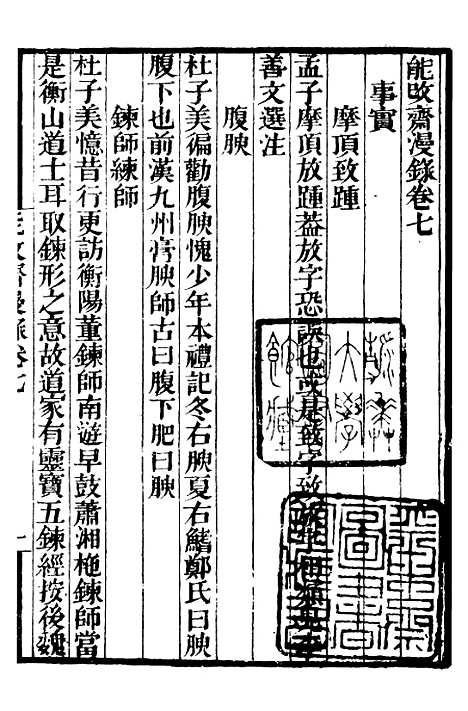 能改齋漫錄卷七
事實
摩頂致踵
孟子摩頂放踵葢放字恐誤也或是致字致放字相類見李
善文選注
腹腴
杜子美徧勸腹腴愧少年本禮記冬右腴夏右鰭鄭氏曰腴
腹下也前漢九州膏腴師古曰腹下肥曰腴
鍊師練師
杜子美憶昔行更訪衡陽董鍊師南遊早鼓瀟湘柂鍊師當
是衡山道士耳取鍊形之意故道家有靈寶五鍊經按後魏
能改齋漫錄卷七
一